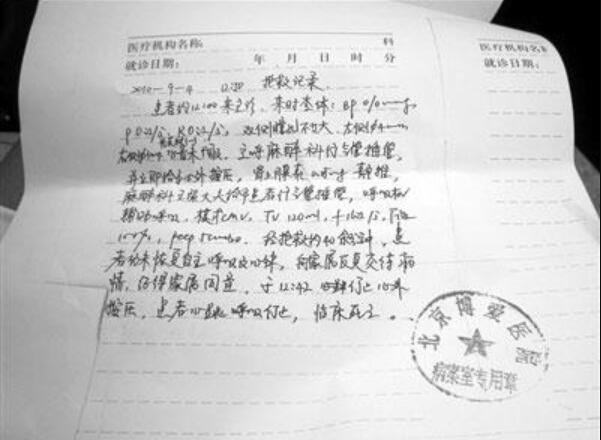 医疗机构名称: 科
就诊日期: 年 月 日 时 分
2010-9-4 抢救记录
患者约12:00来急诊,来时查体:BP 0/0mmHg
P 0次/分,R 0次/分,双侧瞳孔不大
麻醉科行气管插管,
并立即给予心外按压, 静推,
麻醉科 大夫给予患者行气管插管,呼吸机
辅助呼吸,模式CMV,TV 120ml,f 16次/分,
100%,peep 5cmH2O.经抢救约40余分钟,患
者仍未恢复自主呼吸及心跳,向家属反复交待病
情,征得家属同意,于12:42 停止心外
按压,患者心跳呼吸停止,临床死亡。
医疗机构名称
就诊日期:
北京博爱医院
病案室专用章